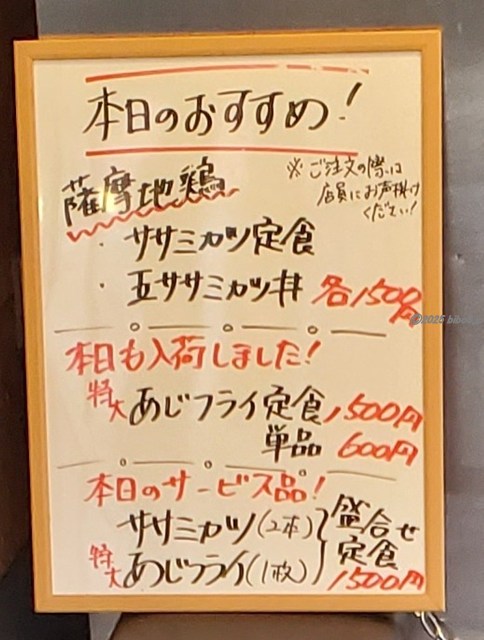 本日のおすすめ!
薩摩地鶏
※ご注文の際は
店員にお声掛け
ください!
・ササミカツ定食
・玉ササミカツ丼 各1500円
本日も入荷しました!
特大 あじフライ定食 1,500円
単品 600円
本日のサービス品!
ササミカツ(2本)
特大 あじフライ(1枚)
盛合せ
定食
1500円
©2025